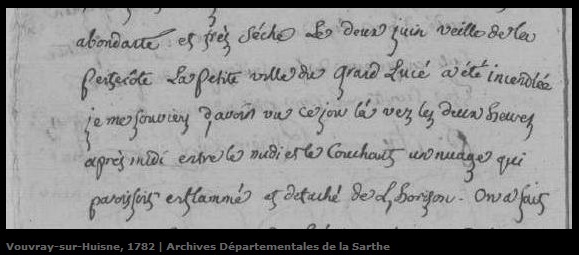 abondante et très séche Le deux juin veille de la
pentecôte La petite ville du grand Lucé a été incendiée
je me souviens d'avoir vu ce jour là vez les deux heures
après midi entre le midi et le Couchant un nuage qui
paroissoit enflammé et detaché de L'horison. On a fait
Vouvray-sur-Huisne, 1782 | Archives Départementales de la Sarthe